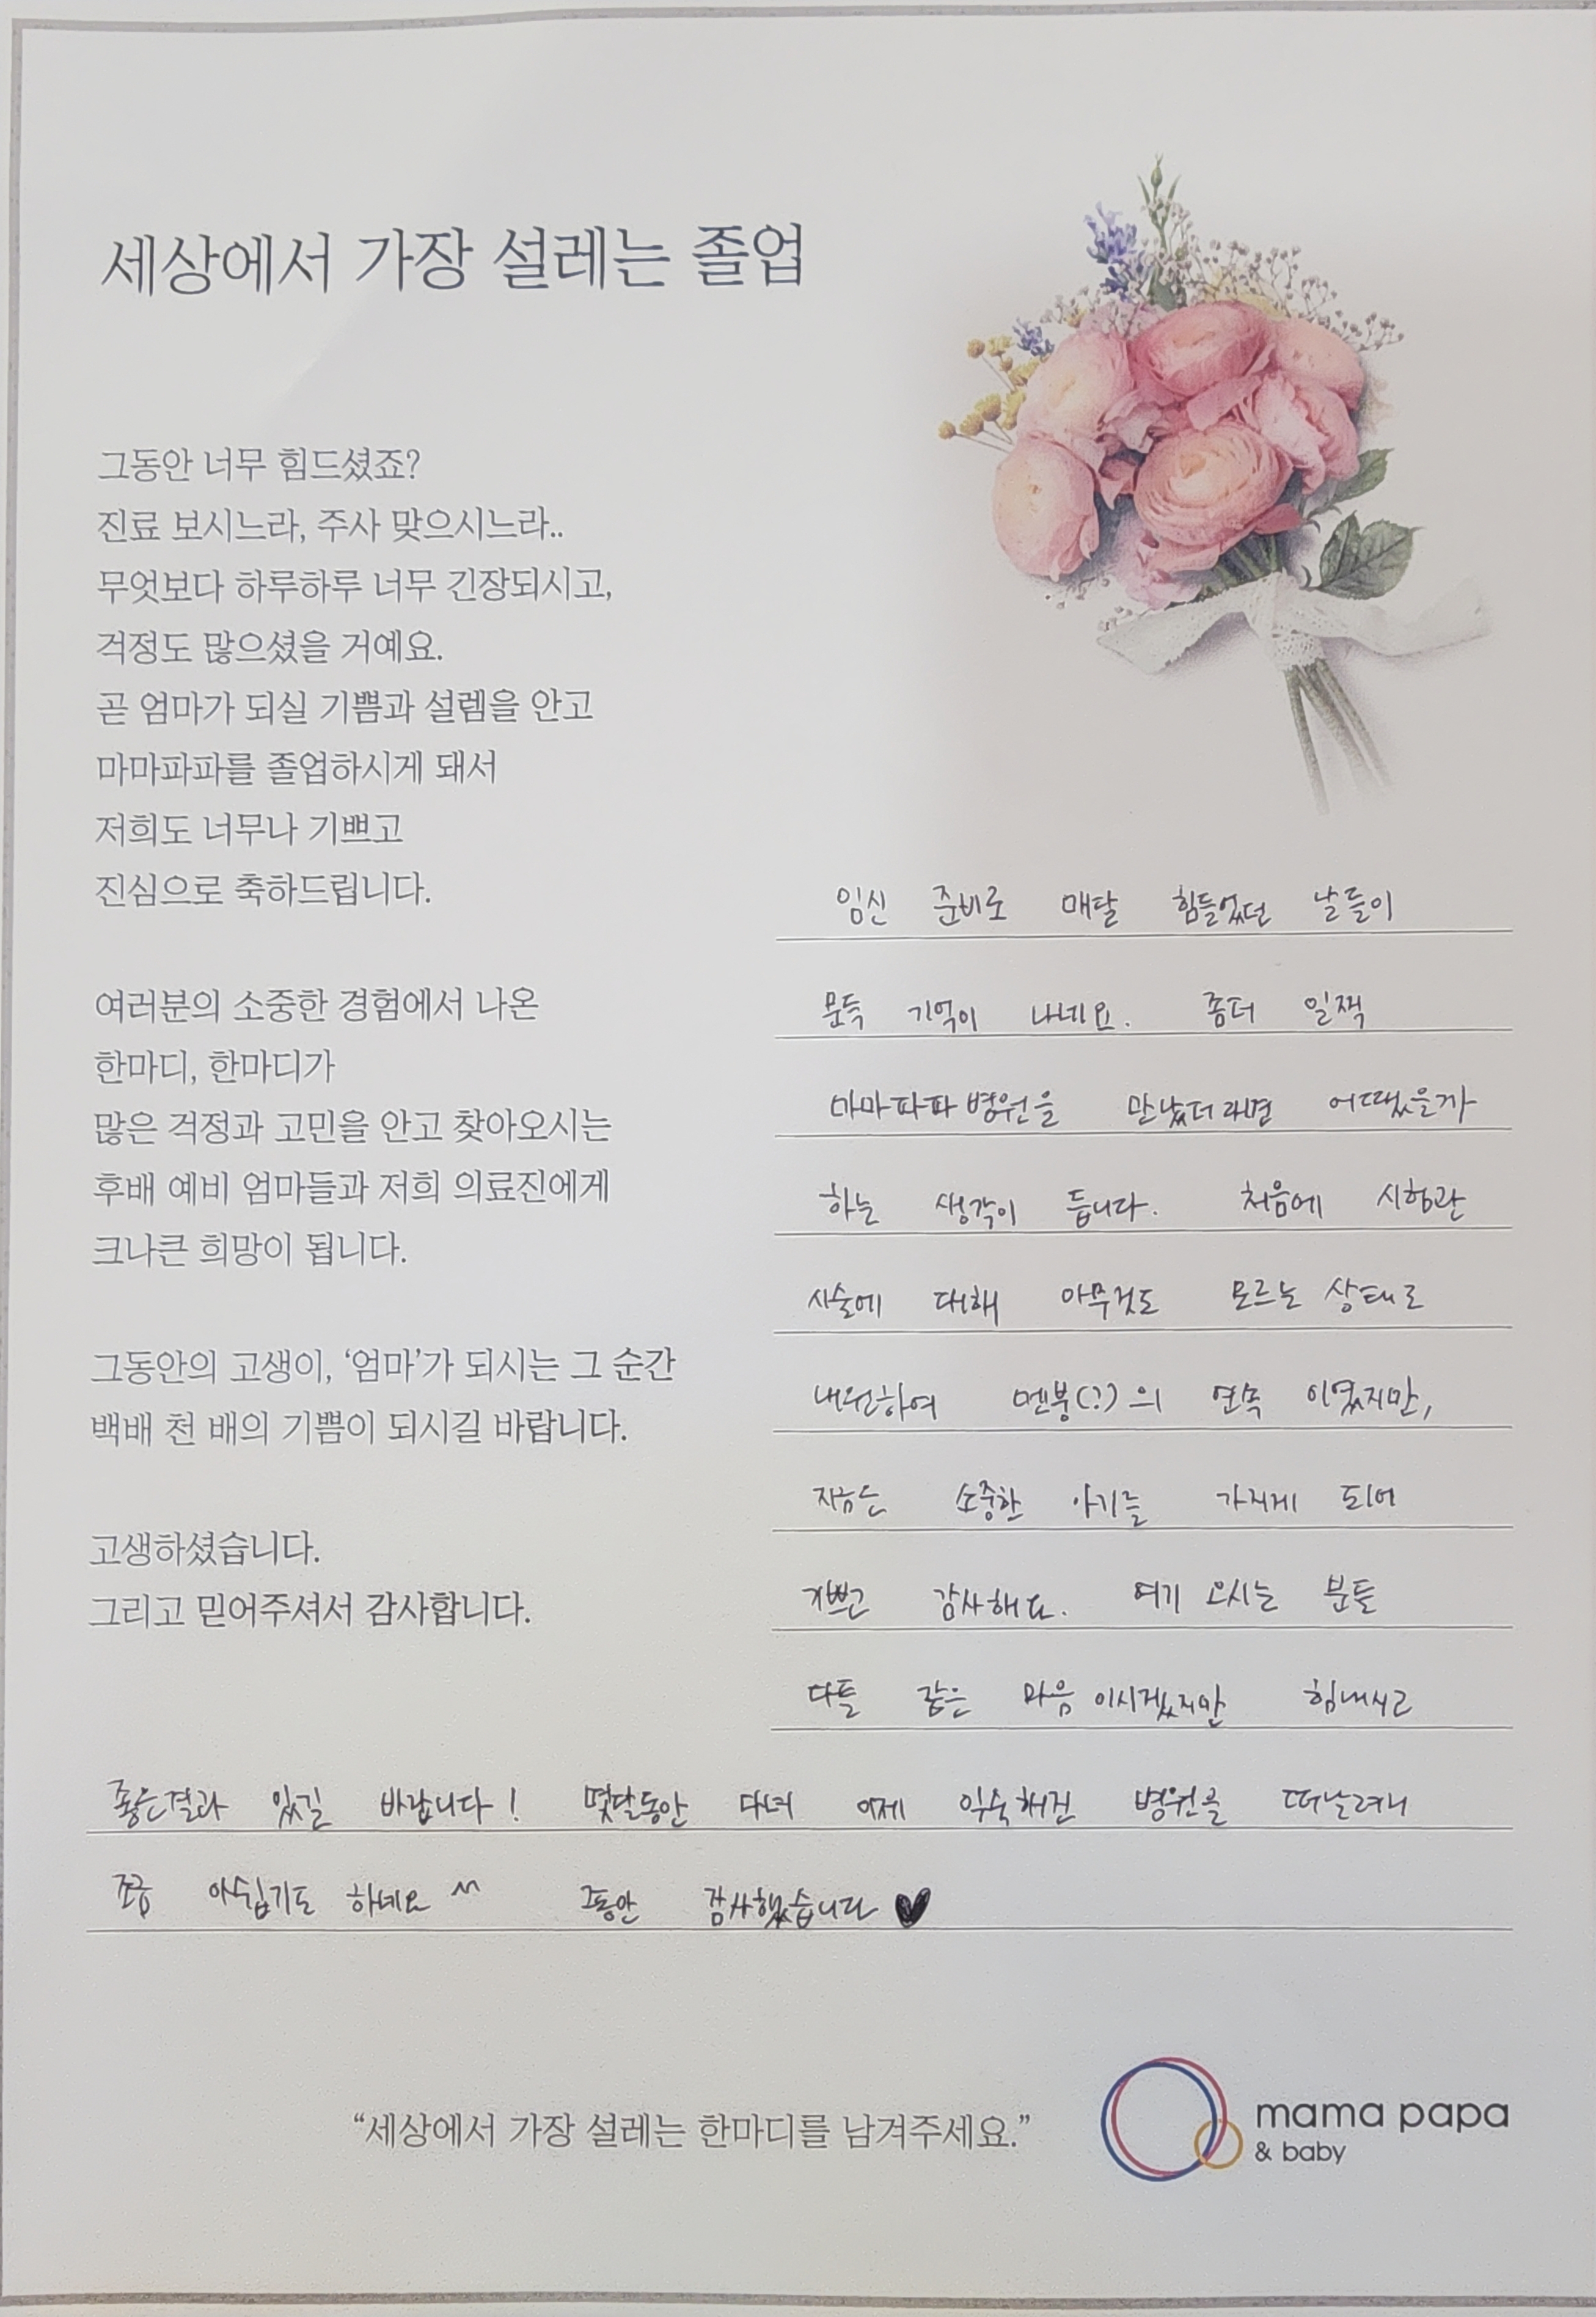 세상에서 가장 설레는 졸업
그동안 너무 힘드셨죠?
진료 보시느라, 주사 맞으시느라..
무엇보다 하루하루 너무 긴장되시고,
걱정도 많으셨을 거예요.
곧 엄마가 되실 기쁨과 설렘을 안고
마마파파를 졸업하시게 돼서
저희도 너무나 기쁘고
진심으로 축하드립니다.
여러분의 소중한 경험에서 나온
한마디, 한마디가
많은 걱정과 고민을 안고 찾아오시는
후배 예비 엄마들과 저희 의료진에게
크나큰 희망이 됩니다.
그동안의 고생이, ‘엄마’가 되시는 그 순간
백배 천 배의 기쁨이 되시길 바랍니다.
고생하셨습니다.
그리고 믿어주셔서 감사합니다.
임신 준비로 매달 힘들었던 날들이
문득 기억이 나네요. 좀더 일찍
마마파파 병원을 만났더라면 어땠을까
하는 생각이 듭니다. 처음에 시험관
시술에 대해 아무것도 모르는 상태로
내원하여 멘붕(?)의 연속 이였지만,
지금은 소중한 아기를 가지게 되어
기쁘고 감사해요. 여기 오시는 분들
다들 같은 마음 이시겠지만 힘내시고
좋은결과 있길 바랍니다! 몇달동안 다녀 이제 익숙해진 병원을 떠날려니
조금 아쉽기도 하네요 ^^ 그동안 감사했습니다 ♥
“세상에서 가장 설레는 한마디를 남겨주세요.”
mama papa
& baby